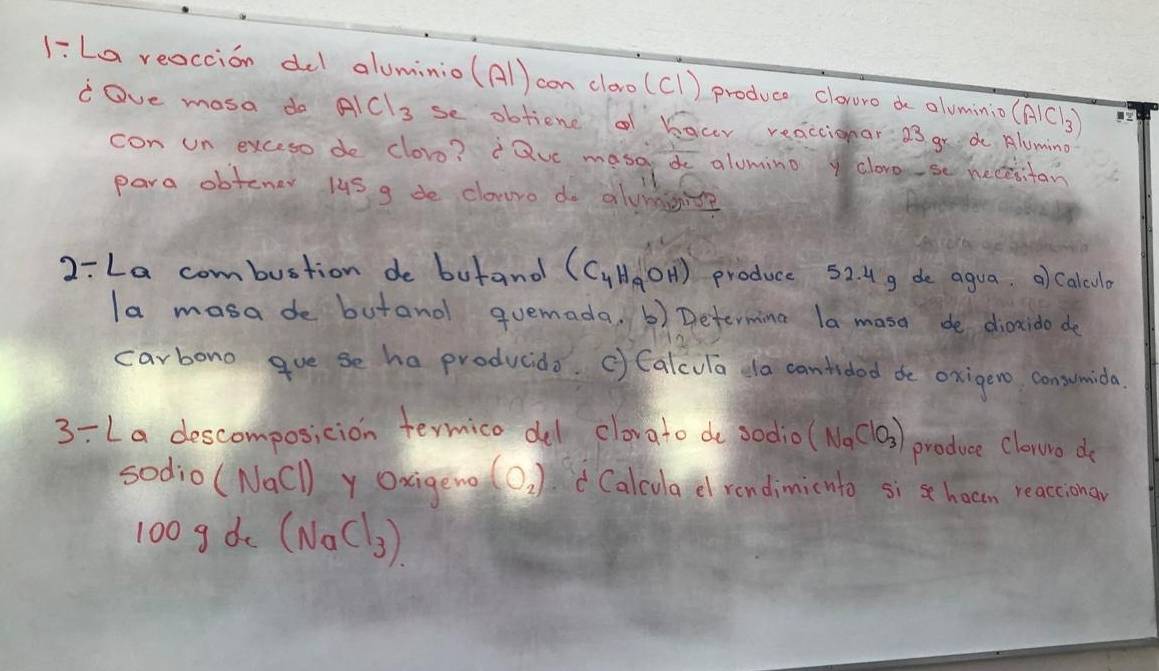 1-. La reacción del aluminio (Al) con cloro (Cl) produce cloruro de aluminio (AlCl3)
¿Que masa de AlCl3 se obtiene al hacer reaccionar 23 gr de Alumino
con un exceso de cloro? ¿Que masa de alumino y cloro se necesitan
para obtener 145 g de cloruro de aluminio?
2-. La combustion de butanol (C4H9OH) produce 52.4 g de agua. a) Calcula
la masa de butanol quemada. b) Determina la masa de dioxido de
Carbono que se ha producido. c) Calcula la cantidad de oxigeno consumida.
3-. La descomposición termica del Clorato de sodio (NaClO3) produce Cloruro de
sodio (NaCl) y Oxigeno (O2). ¿Calcula el rendimiento si se hacen reaccionar
100 g de (NaCl3).